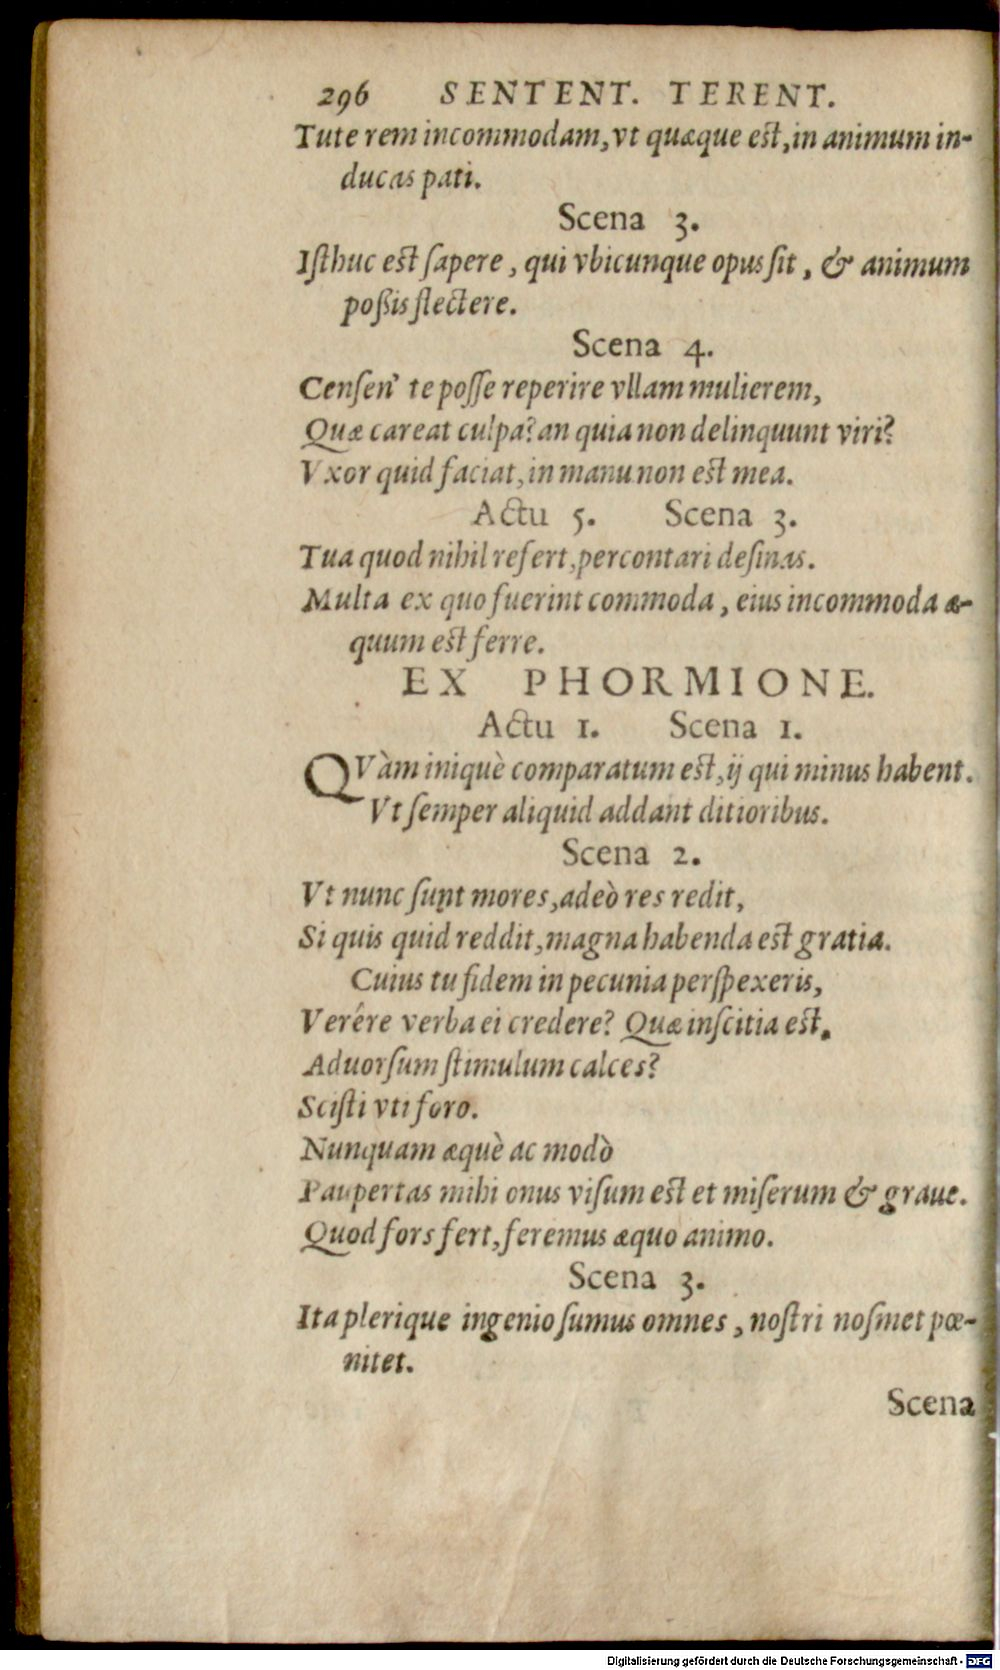 296 SENTENT. TERENT.
Tute rem incommodam, vt quæque est, in animum in-
ducas pati.
Scena 3.
Iſthuc est ſapere, qui vbicunque opus ſit, & animum
poßis flectere.
Scena 4.
Cenſen' te poſſe reperire vllam mulierem,
Quæ careat culpa? an quia non delinquunt viri?
Vxor quid faciat, in manu non est mea.
Actu 5. Scena 3.
Tua quod nihil refert, percontari deſinas.
Multa ex quo fuerint commoda, eius incommoda æ-
quum est ferre.
EX PHORMIONE.
Actu 1. Scena 1.
QVàm iniquè comparatum est, ij qui minus habent.
Vt ſemper aliquid addant ditioribus.
Scena 2.
Vt nunc ſunt mores, adeò res redit,
Si quis quid reddit, magna habenda est gratia.
Cuius tu fidem in pecunia perſpexeris,
Verêre verba ei credere? Quæ inſcitia est.
Aduorſum ſtimulum calces?
Sciſti vti foro.
Nunquam æquè ac modò
Paupertas mihi onus viſum est et miſerum & graue.
Quod fors fert, feremus æquo animo.
Scena 3.
Ita plerique ingenio ſumus omnes, noſtri noſmet pœ-
nitet.
Scena
Digitalisierung gefördert durch die Deutsche Forschungsgemeinschaft - DFG